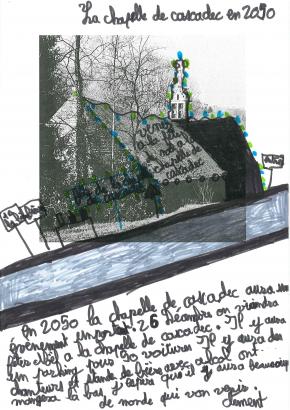 La chapelle de cascadec en 2050
venez
à la
chapelle de
cascadec
en 2050 la chapelle de cascadec aura un
évènement important : 26 décembre on viendra
fêter noël a la chapelle de cascadec. Il y aura
un parking pour 90 voitures Il y aura des
chanteurs et stande de bière avec alcool ont
mangera la bas. J'espère que il y aura beaucoup
de monde qui van venir.
clement